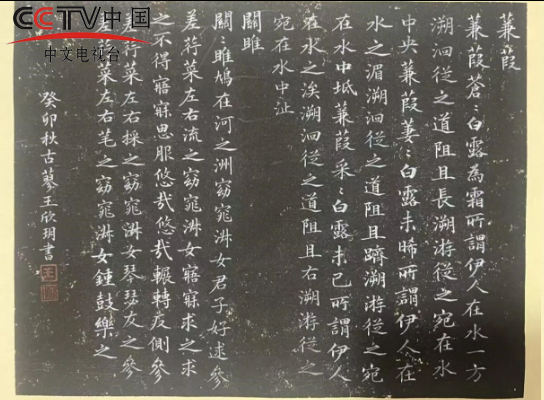 CCTV中国
中文电视台
蒹葭
蒹葭蒼〻白露為霜所謂伊人在水一方
溯洄從之道阻且長溯游從之宛在水
中央蒹葭萋〻白露未晞所謂伊人在
水之湄溯洄從之道阻且躋溯游從之宛
在水中坻蒹葭采〻白露未已所謂伊人
在水之涘溯洄從之道阻且右溯游從之
宛在水中沚
關雎
關雎鳩在河之洲窈窕淋女君子好逑參
差荇菜左右流之窈窕淋女寤寐求之求
之不得寤寐思服悠哉悠哉輾轉反側參
差荇菜左右採之窈窕淋女琴瑟友之參
差荇菜左右芼之窈窕淋女鍾鼓樂之
癸卯秋古蓼王欣玥書